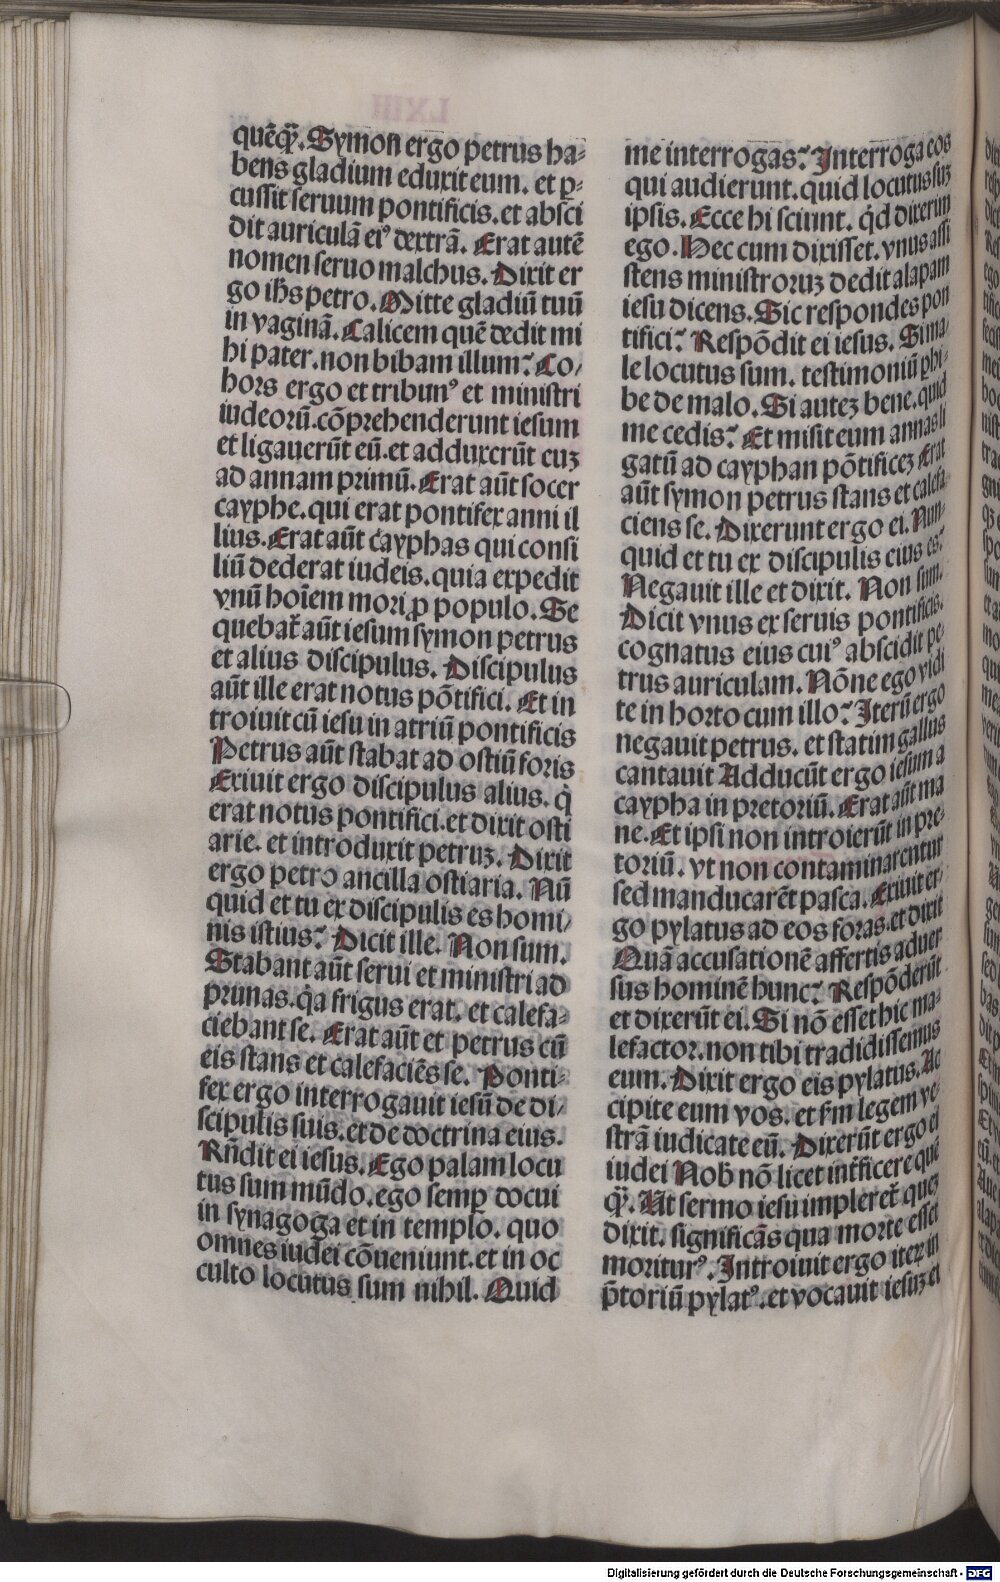 quēq̄ȝ. Symon ergo petrus ha⸗
bens gladium eduxit eum. et ꝑ⸗
cussit seruum pontificis. et absci
dit auriculā eiꝰ dextrā. Erat autē
nomen seruo malchus. Dixit er
go ih̄s petro. Mitte gladiū tuū
in vaginā. Calicem quē dedit mi
hi pater. non bibam illum? Co/
hors ergo et tribunꝰ et ministri
iudeorū. cōprehenderunt iesum
et ligauerūt eū. et adduxerūt euȝ
ad annam primū. Erat aūt socer
cayphe. qui erat pontifex anni il
lius. Erat aūt cayphas qui consi
liū dederat iudeis. quia expedit
vnū hoīem mori ꝓ populo. Se
quebat̄ aūt iesum symon petrus
et alius discipulus. Discipulus
aūt ille erat notus pōtifici. Et in
troiuit cū iesu in atriū pontificis
Petrus aūt stabat ad ostiū foris
Exiuit ergo discipulus alius. q̇
erat notus pontifici. et dixit osti
arie. et introduxit petruȝ. Dixit
ergo petro ancilla ostiaria. Nū
quid et tu ex discipulis es homi/
nis istius? Dicit ille. Non sum.
Stabant aūt serui et ministri ad
prunas. q̄a frigus erat. et calefa⸗
ciebant se. Erat aūt et petrus cū
eis stans et calefaciēs se. Ponti⸗
fex ergo interrogauit iesū de di/
scipulis suis. et de doctrina eius.
Rn̄dit ei iesus. Ego palam locu
tus sum mūdo. ego semꝑ docui
in synagoga et in templo. quo
omnes iudei cōueniunt. et in oc
culto locutus sum nihil. Quid
LXIII
me interrogas? Interroga eos
qui audierunt. quid locutus suȝ
ipsis. Ecce hi sciunt. q̄d dixerim
ego. Hec cum dixisset. vnus assi
stens ministroruȝ dedit alapam
iesu dicens. Sic respondes pon
tifici? Respōdit ei iesus. Si ma/
le locutus sum. testimoniū ꝑhi⸗
be de malo. Si auteȝ bene. quid
me cedis? Et misit eum annas li
gatū ad cayphan pōtificeȝ Erat
aūt symon petrus stans et calefa⸗
ciens se. Dixerunt ergo ei. Nun⸗
quid et tu ex discipulis eius es?
Negauit ille et dixit. Non sum.
Dicit vnus ex seruis pontificis.
cognatus eius cuiꝰ abscidit pe⸗
trus auriculam. Nōne ego vidi
te in horto cum illo? Iterū ergo
negauit petrus. et statim gallus
cantauit Adducūt ergo iesum a
caypha in pretoriū. Erat aūt ma
ne. Et ipsi non introierūt in pre⸗
toriū. vt non contaminarentur
sed manducarēt pasca. Exiuit er⸗
go pylatus ad eos foras. et dixit
Quā accusationē affertis aduer
sus hominē hunc? Respōderūt
et dixerūt ei. Si nō esset hic ma⸗
lefactor. non tibi tradidissemus
eum. Dixit ergo eis pylatus. Ac
cipite eum vos. et ẜm legem ve⸗
strā iudicate eū. Dixerūt ergo ei
iudei Nob̄ nō licet int̄ficere quē
q̄ȝ. Ut sermo iesu impleret̄ queȝ
dixit. significās qua morte esset
moriturꝰ. Introiuit ergo iteꝝ in
p̄toriū pylatꝰ. et vocauit iesuȝ et
Digitalisierung gefördert durch die Deutsche Forschungsgemeinschaft - DFG